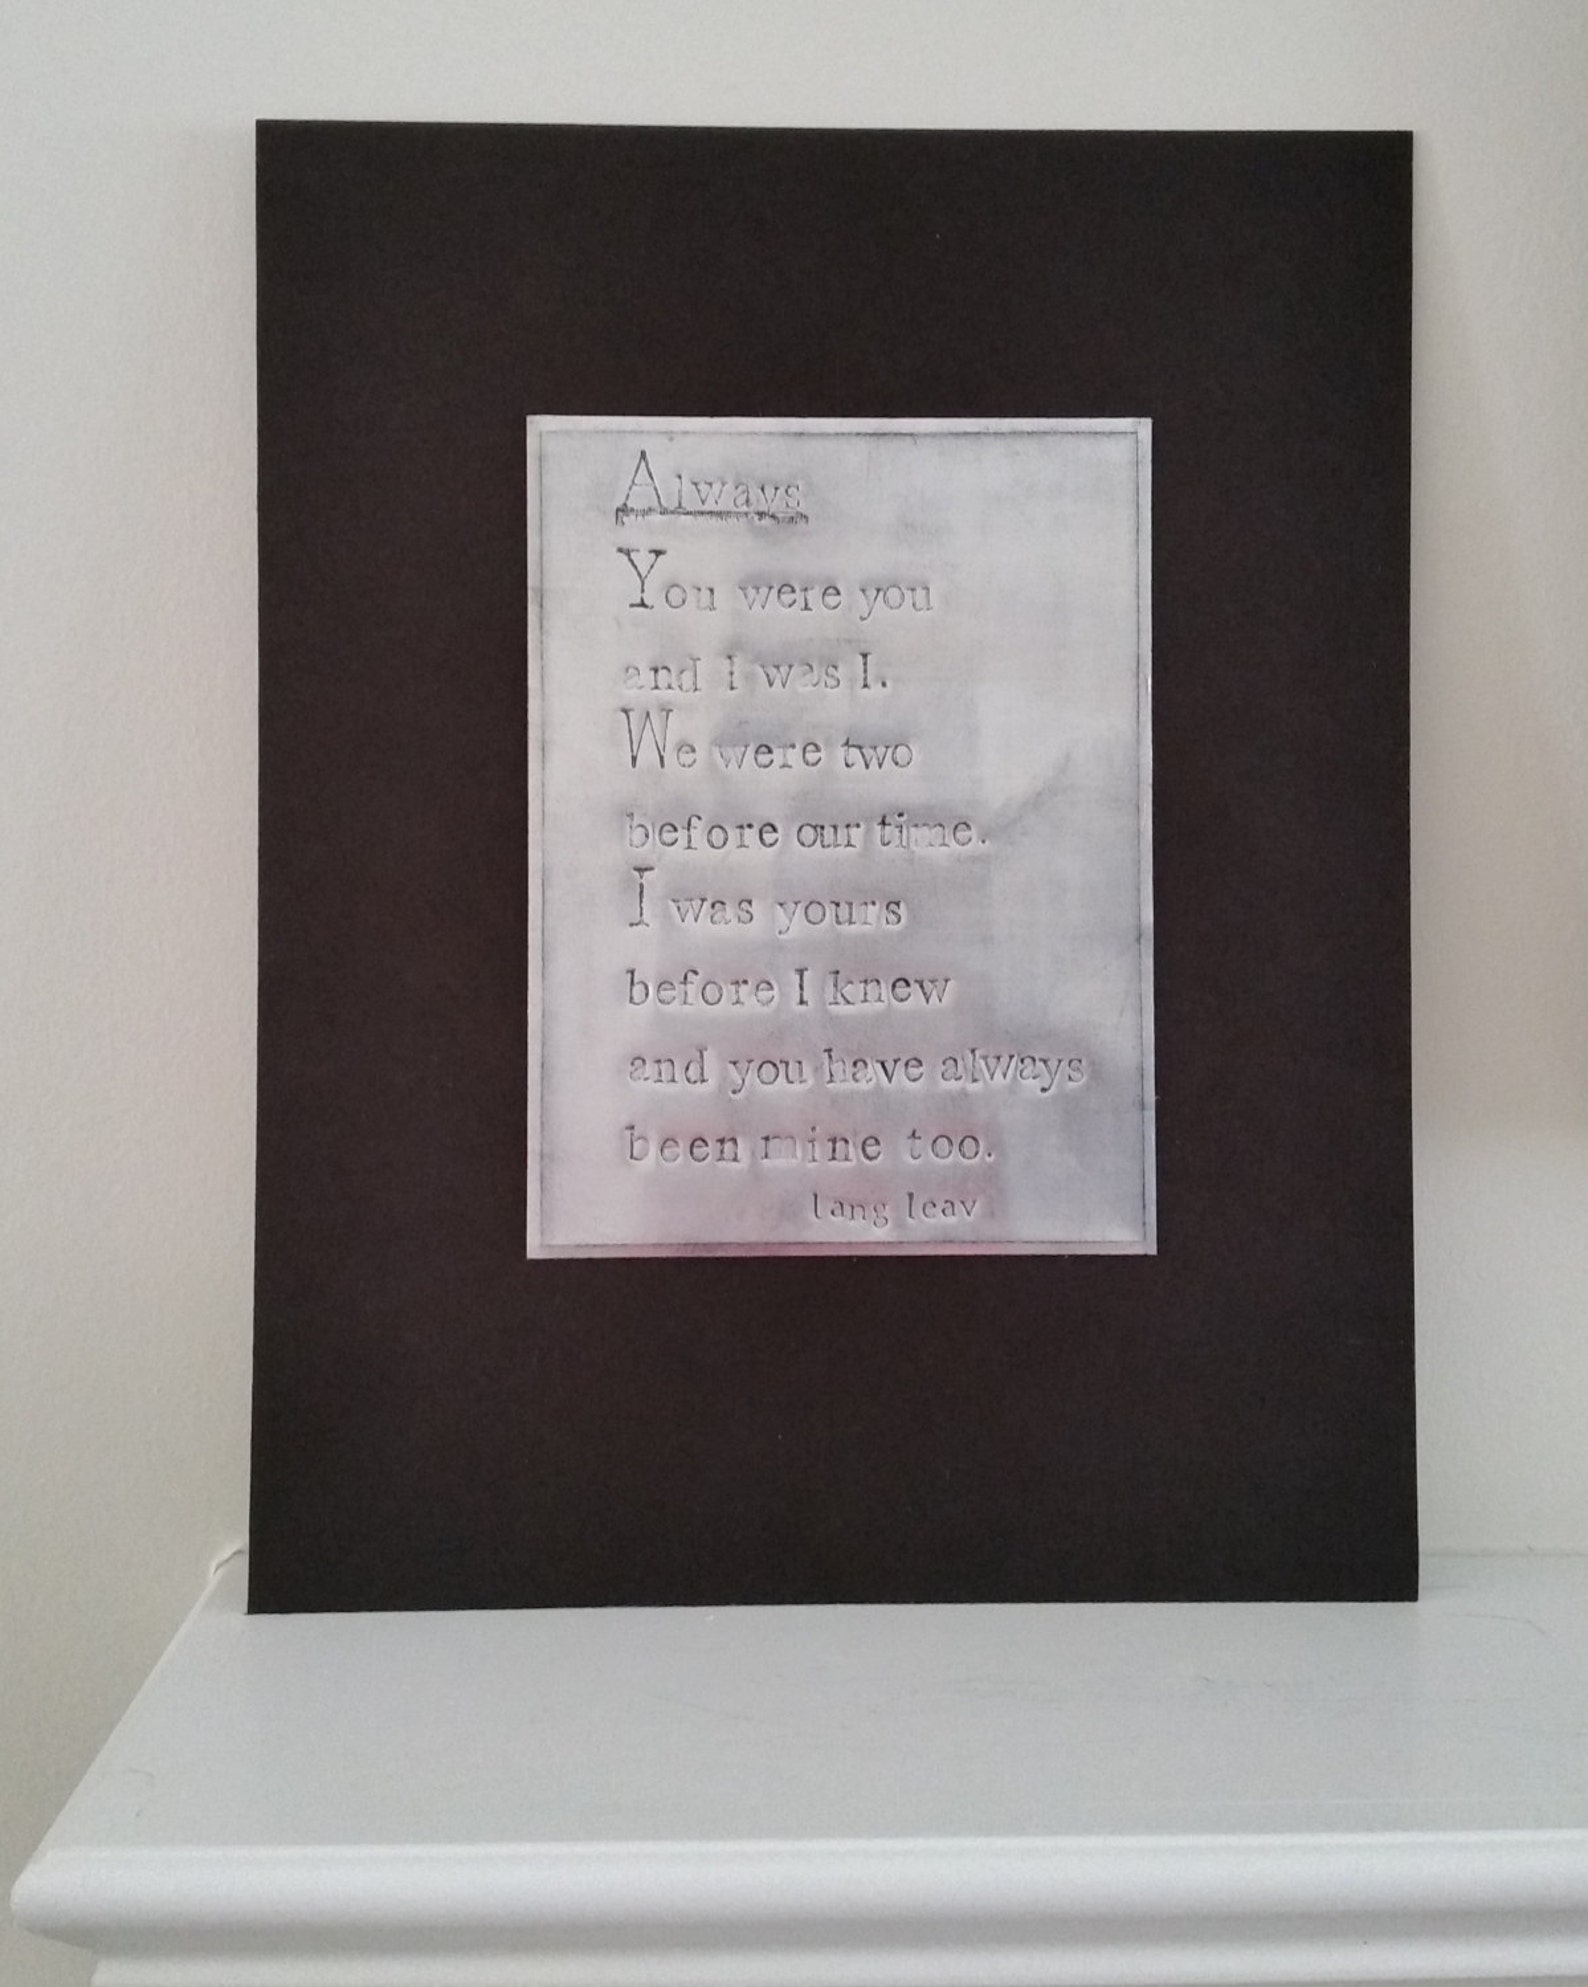 Always
You were you
and I was I.
We were two
before our time.
I was yours
before I knew
and you have always
been mine too.
lang leav